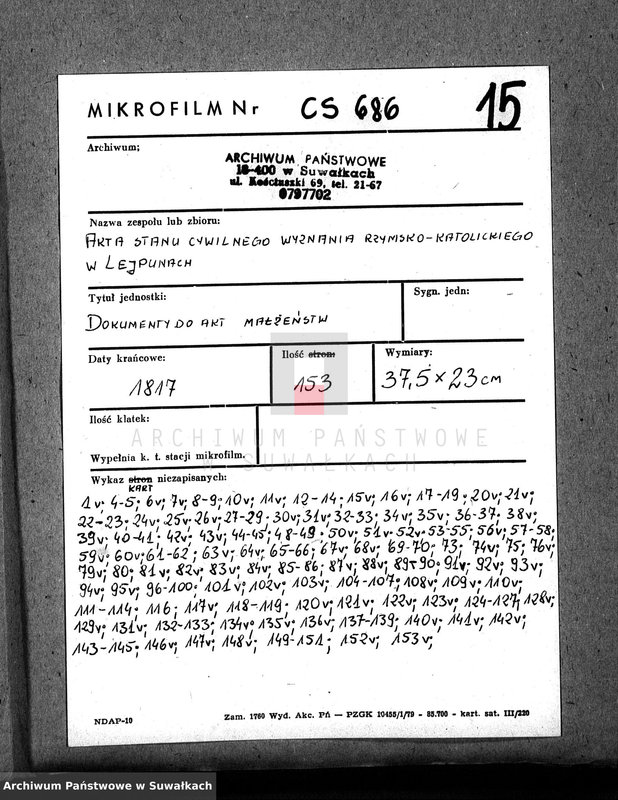 MIKROFILM Nr CS 686 15
Archiwum;
ARCHIWUM PAŃSTWOWE
16-400 w Suwałkach
ul. Kościuszki 69, tel. 21-67
0797702
Nazwa zespołu lub zbioru:
AKTA STANU CYWILNEGO WYZNANIA RZYMSKO-KATOLICKIEGO
W LEJPUNACH
Tytuł jednostki: Sygn. jedn:
DOKUMENTY DO AKT MAŁŻEŃSTW
Daty krańcowe: Ilość stron: Wymiary:
1817 153 37,5 × 23 cm
Ilość klatek:
ARCHIWUM PAŃSTWOWE
W SUWAŁKACH
Wypełnia k. t. stacji mikrofilm.
Wykaz stron niezapisanych:
KART
1v; 4-5; 6v; 7v; 8-9; 10v; 11v; 12-14; 15v; 16v; 17-19; 20v; 21v;
22-23; 24v; 25v; 26v; 27-29; 30v; 31v; 32-33; 34v; 35v; 36-37; 38v;
39v; 40-41; 42v; 43v; 44-45; 48-49; 50v; 51v; 52v; 53-55; 56v; 57-58;
59v; 60v; 61-62; 63v; 64v; 65-66; 67v; 68v; 69-70; 73; 74v; 75; 76v;
79v; 80; 81v; 82v; 83v; 84v; 85-86; 87v; 88v; 89-90; 91v; 92v; 93v;
94v; 95v; 96-100; 101v; 102v; 103v; 104-107; 108v; 109v; 110v;
111-114; 116; 117v; 118-119; 120v; 121v; 122v; 123v; 124-127; 128v;
129v; 131v; 132-133; 134v; 135v; 136v; 137-139; 140v; 141v; 142v;
143-145; 146v; 147v; 148v; 149-151; 152v; 153v;
NDAP-10 Zam. 1760 Wyd. Akc. Pń — PZGK 10455/1/79 - 85.700 - kart. sat. III/220
Archiwum Państwowe w Suwałkach